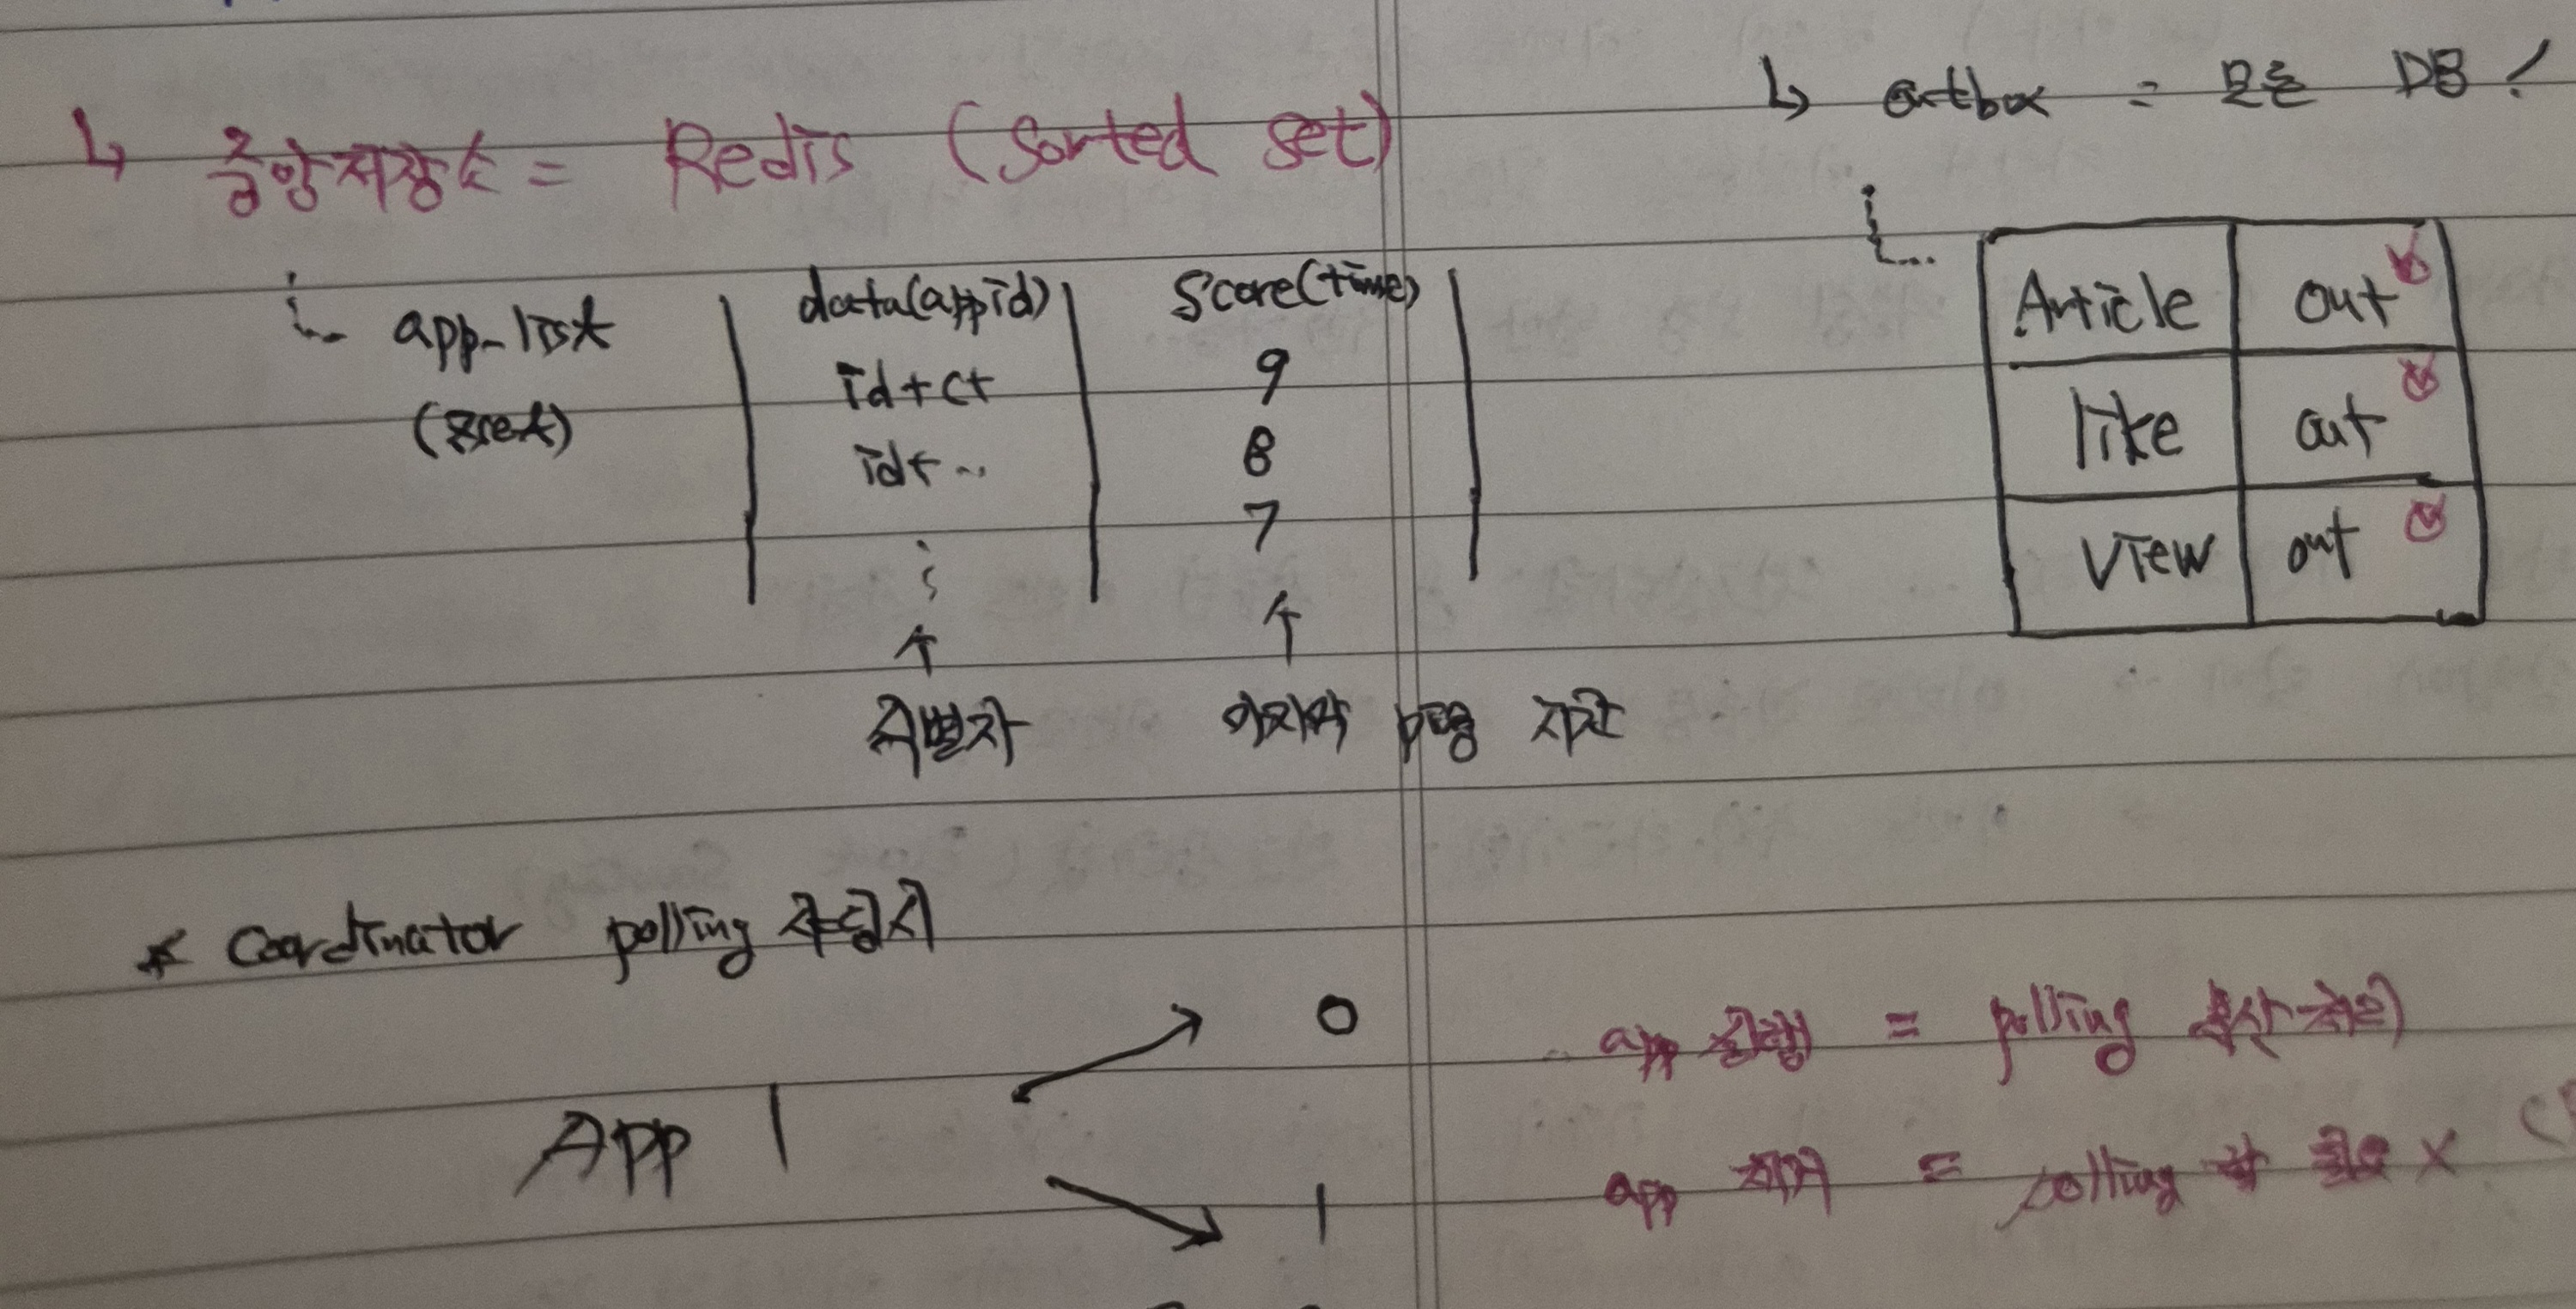 ↳ 중앙저장소 = Redis (Sorted set)
app-list
(zset)
data(appid)
id+ct
id+ ..
식별자
Score(time)
9
8
7
마지막 ping 시간
↳ outbox = 모든 DB!
Article out
like out
View out
* Coordinator polling 수행시
App 1
0
1
app 실행 = polling
app 제거 = polling 할 필요 X